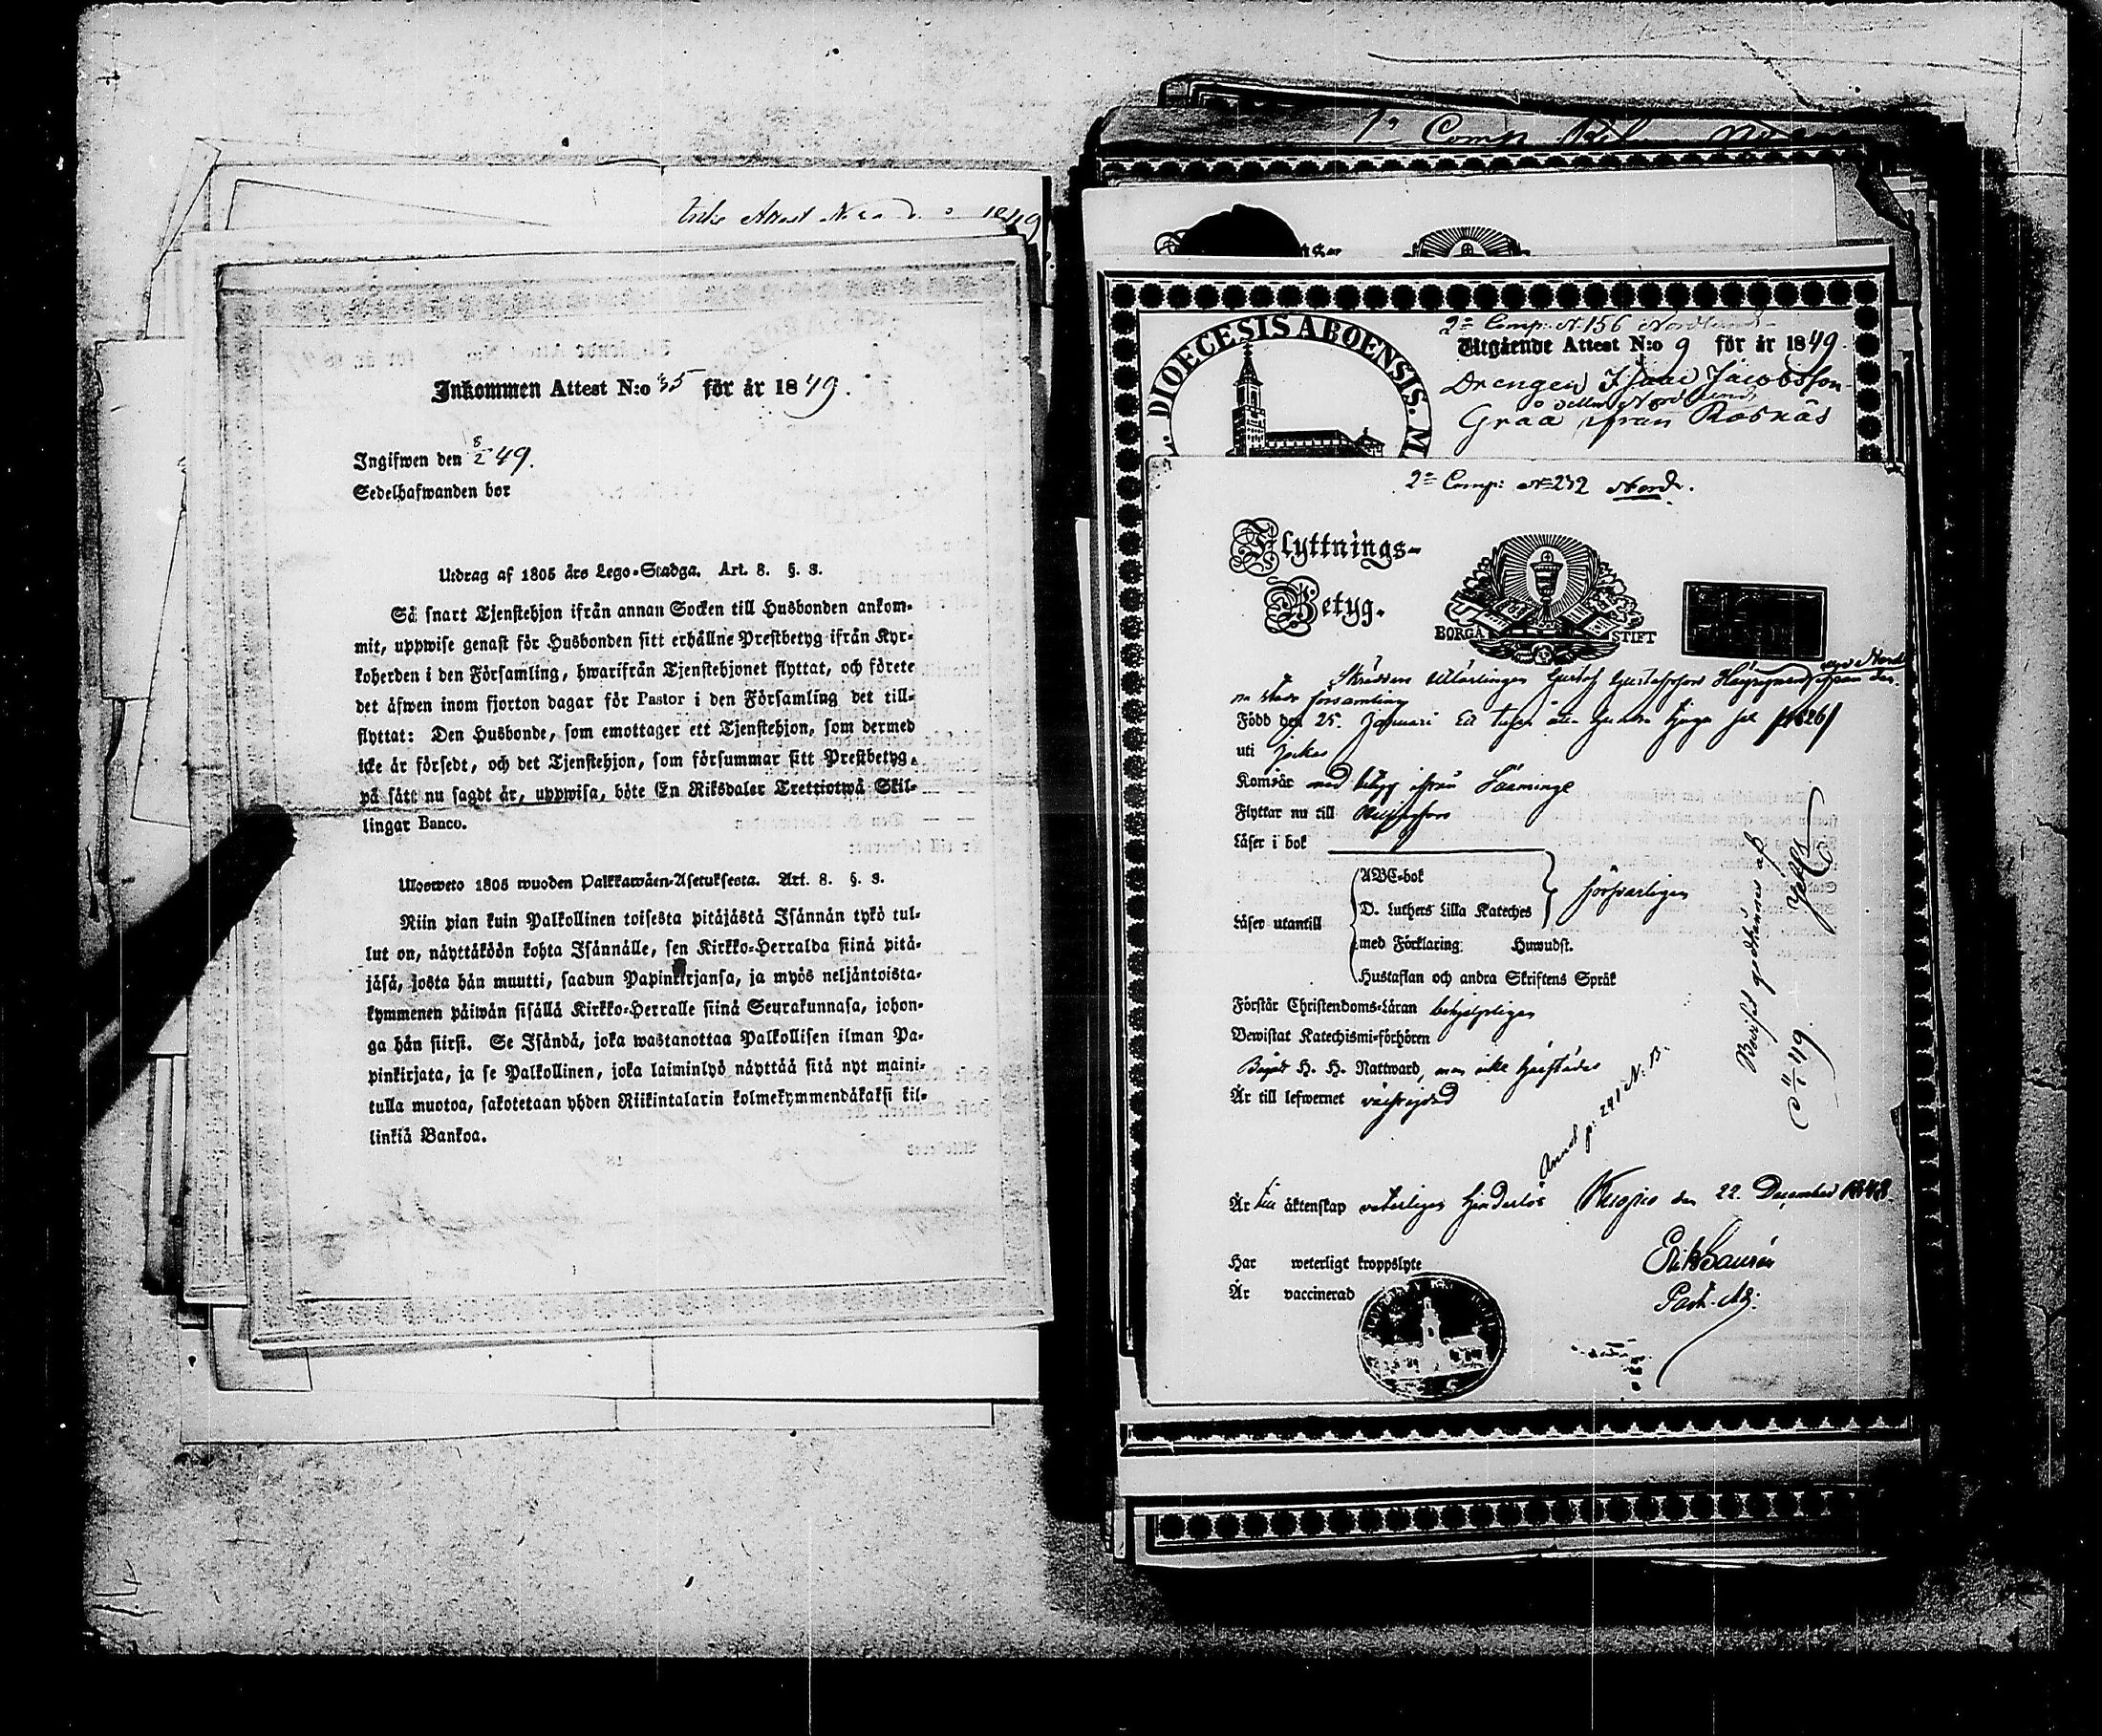 Inkommen Attest N:o 35 för år 1849.
Ingifwen den 8/2 49.
Sedelhafwanden bor
Utdrag af 1805 års Lego-Stadga. Art. 8. §. 3.
Så snart Tjenstehjon ifrån annan Socken till Husbonden ankom-
mit, uppwise genast för Husbonden sitt erhållne Prestbetyg ifrån Kyr-
koherden i den Församling, hwarifrån Tjenstehjonet flyttat, och förete
det äfwen inom fjorton dagar för Pastor i den Församling det till-
flyttat: Den Husbonde, som emottager ett Tjenstehjon, som dermed
icke är försedt, och det Tjenstehjon, som försummar sitt Prestbetyg,
på sätt nu sagdt är, uppwisa, böte En Riksdaler Trettiotwå Skil-
lingar Banco.
Ulosweto 1805 wuoden Palkkawäen-Asetuksesta. Art. 8. §. 3.
Niin pian kuin Palkollinen toisesta pitäjästä Isännän tykö tul-
lut on, näyttäköön kohta Isännälle, sen Kirkko-Herralda siinä pitä-
jäsä, josta hän muutti, saadun Papinkirjansa, ja myös neljäntoista-
kymmenen päiwän sisällä Kirkko-Herralle siinä Seurakunnasa, johon-
ga hän siirsi. Se Isändä, joka wastanottaa Palkollisen ilman Pa-
pinkirjata, ja se Palkollinen, joka laiminlyö näyttää sitä nyt maini-
tulla muotoa, sakotetaan yhden Riikintalarin kolmekymmendäkaksi kil-
linkiä Bankoa.
1a Comp
DIOECESIS ABOENSIS. M
2a Comp: N:156 Nordlund
Utgående Attest N:o 9 för år 1849.
Drengen Isaac Jacobsson
eller Nordlund
Graa från Rosnäs
2a Comp: No 232 Nord.
Flyttnings-
Betyg.
BORGÅ STIFT
Skräddare Gustaf Gustafsson ifrån
församling
Född den 25. Januari Ett tusen åtta hundra tjugu sex /1826/
uti Jockas
Komsår med betyg ifrån Sääminge
Flyttar nu till Helsingfors
Läser i bok
Läser utantill
ABC-bok
D. Luthers Lilla Kateches
med Förklaring Huwudst.
Hustaflan och andra Skriftens Språk
försvarligen
Förstår Christendoms-Läran behjelpligen
Bewistat Katechismi-förhören
Begått H. H. Nattward, men icke härstädes
Är till lefwernet
Annot p. 241 N. B.
Är till äktenskap veterligen hinderlös Kuopio den 22. December 1848.
Har weterligt kroppslyte
Är vaccinerad